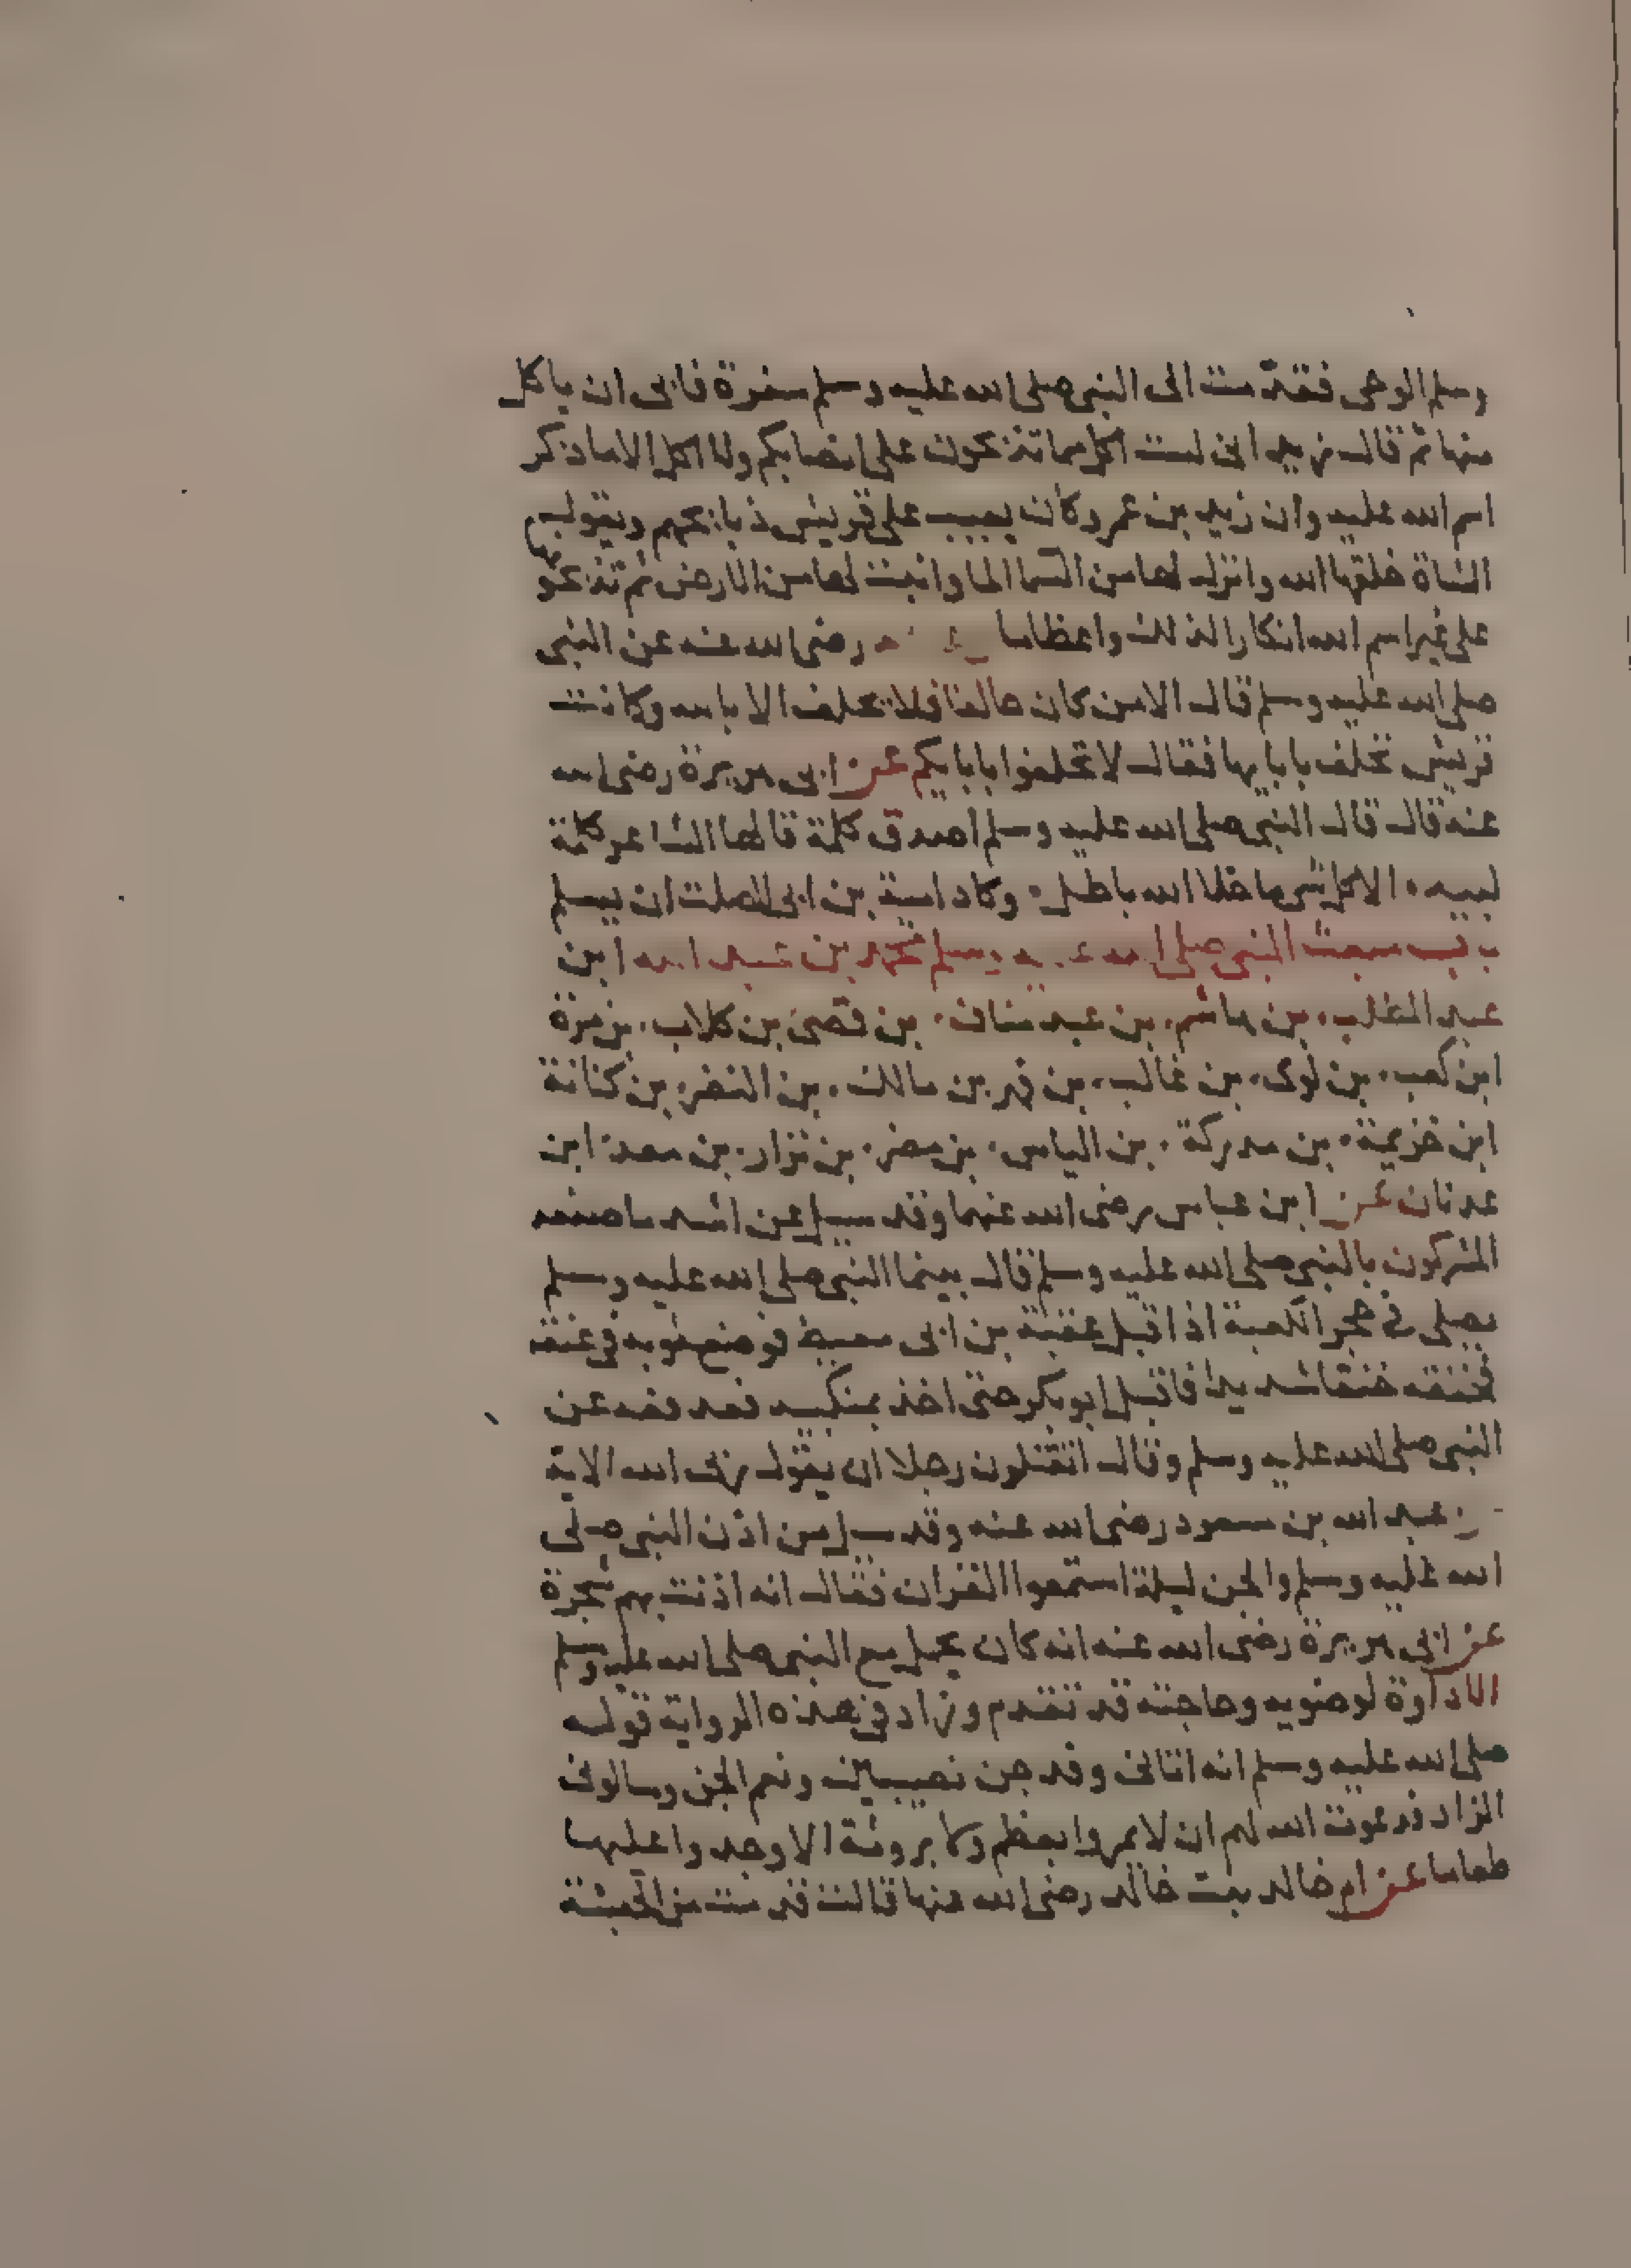 وسلم الوحى فقدمت الى النبى صلى الله عليه وسلم سفرة فابى ان ياكل
منها ثم قال زيد انى لست اكل مما تذبحون على انصابكم ولا اكل الا ما ذكر
اسم الله عليه وان زيد بن عمرو كان يعيب على قريش ذبايحهم ويقول
الشاة خلقها الله وانزل لها من السما الما وانبت لها من الارض ثم تذبحو
على غير اسم الله انكارا لذلك واعظاما رضى الله عنه عن النبى
صلى الله عليه وسلم قال الا من كان حالفا فلا يحلف الا بالله وكانت
قريش تحلف بابايها فقال لا تحلفوا بابايكم عن ابى هريرة رضى الله
عنه قال قال النبى صلى الله عليه وسلم اصدق كلمة قالها الشاعر كلمة
لبيد الا كل شى ما خلا الله باطل وكاد امية بن ابى الصلت ان يسلم
باب مبعث النبى صلى الله عليه وسلم محمد بن عبد الله ابن
عبد المطلب بن هاشم بن عبد مناف بن قصى بن كلاب بن مرة
ابن كعب بن لوى بن غالب بن فهر بن مالك بن النضر بن كنانة
ابن خزيمة بن مدركة بن الياس بن مضر بن نزار بن معد ابن
عدنان عن ابن عباس رضى الله عنهما وقد سيل عن اشد ما صنعه
المشركون بالنبى صلى الله عليه وسلم قال بينما النبى صلى الله عليه وسلم
يصلى فى حجر الكعبة اذ اقبل عقبة بن ابى معيط فوضع ثوبه فى عنقه
فخنقه خنقا شديدا فاقبل ابو بكر حتى اخذ بمنكبيه فدفعه عن
النبى صلى الله عليه وسلم وقال اتقتلون رجلا ان يقول ربى الله الاية
عبد الله بن مسعود رضى الله عنه وقد سيل من اذن النبى صلى
الله عليه وسلم والجن ليلة استمعوا القران فقال انه اذنت بهم شجرة
عن ابى هريرة رضى الله عنه انه كان يحمل مع النبى صلى الله عليه وسلم
الاداوة لوضويه وحاجته قد تقدم وزاد فى هذه الرواية قوله
صلى الله عليه وسلم انه اتانى وفد جن نصيبين ونعم الجن وسالونى
الزاد فدعوت الله لهم ان لا يمروا بعظم ولا بروثة الا وجدوا عليها
طعاما عن ام خالد بنت خالد رضى الله عنها قالت قدمت من الحبشة